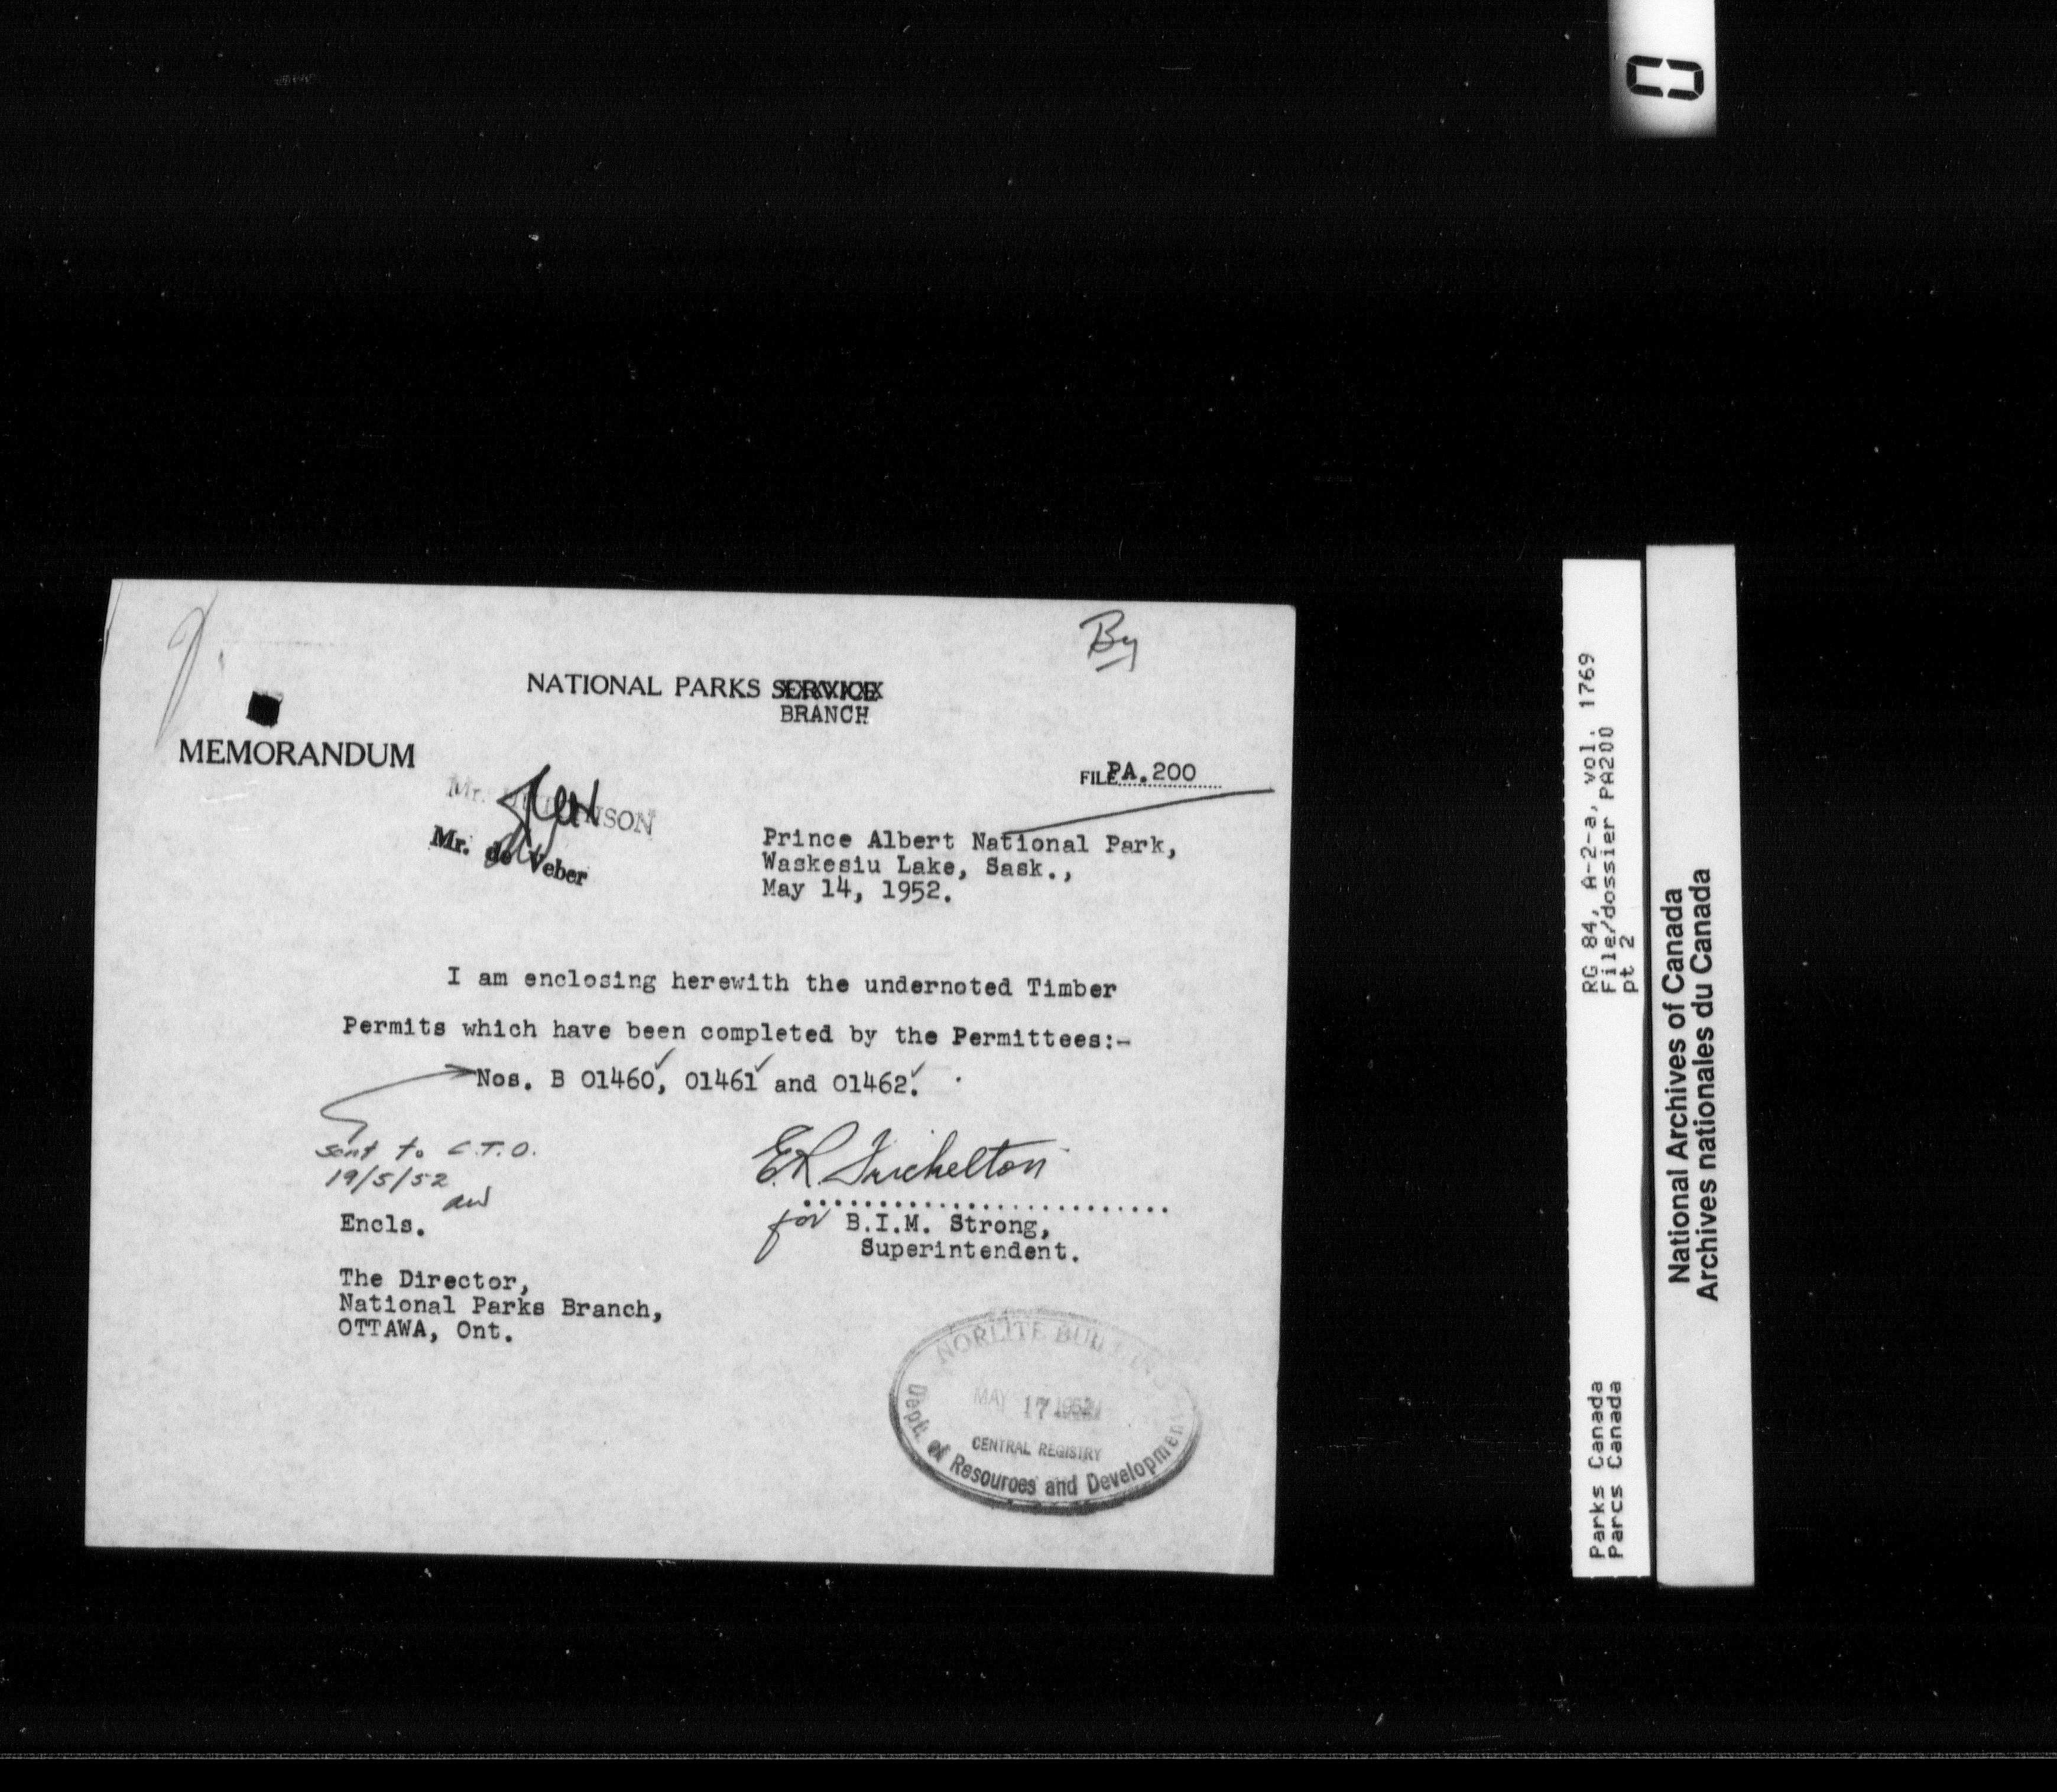 By
NATIONAL PARKS SERVICE
BRANCH
MEMORANDUM
FILE PA.200
Mr.
Mr. de Veber
Prince Albert National Park,
Waskesiu Lake, Sask.,
May 14, 1952.
I am enclosing herewith the undernoted Timber
Permits which have been completed by the Permittees:-
Nos. B 01460, 01461 and 01462.
sent to C.T.O.
19/5/52
Encls.
for B.I.M. Strong,
Superintendent.
The Director,
National Parks Branch,
OTTAWA, Ont.
NORLITE
MAY 17 1952
CENTRAL REGISTRY
Dept. of Resources and Development
RG 84, A-2-a, vol. 1769
File/dossier PA200
pt 2
Parks Canada
Parcs Canada
National Archives of Canada
Archives nationales du Canada